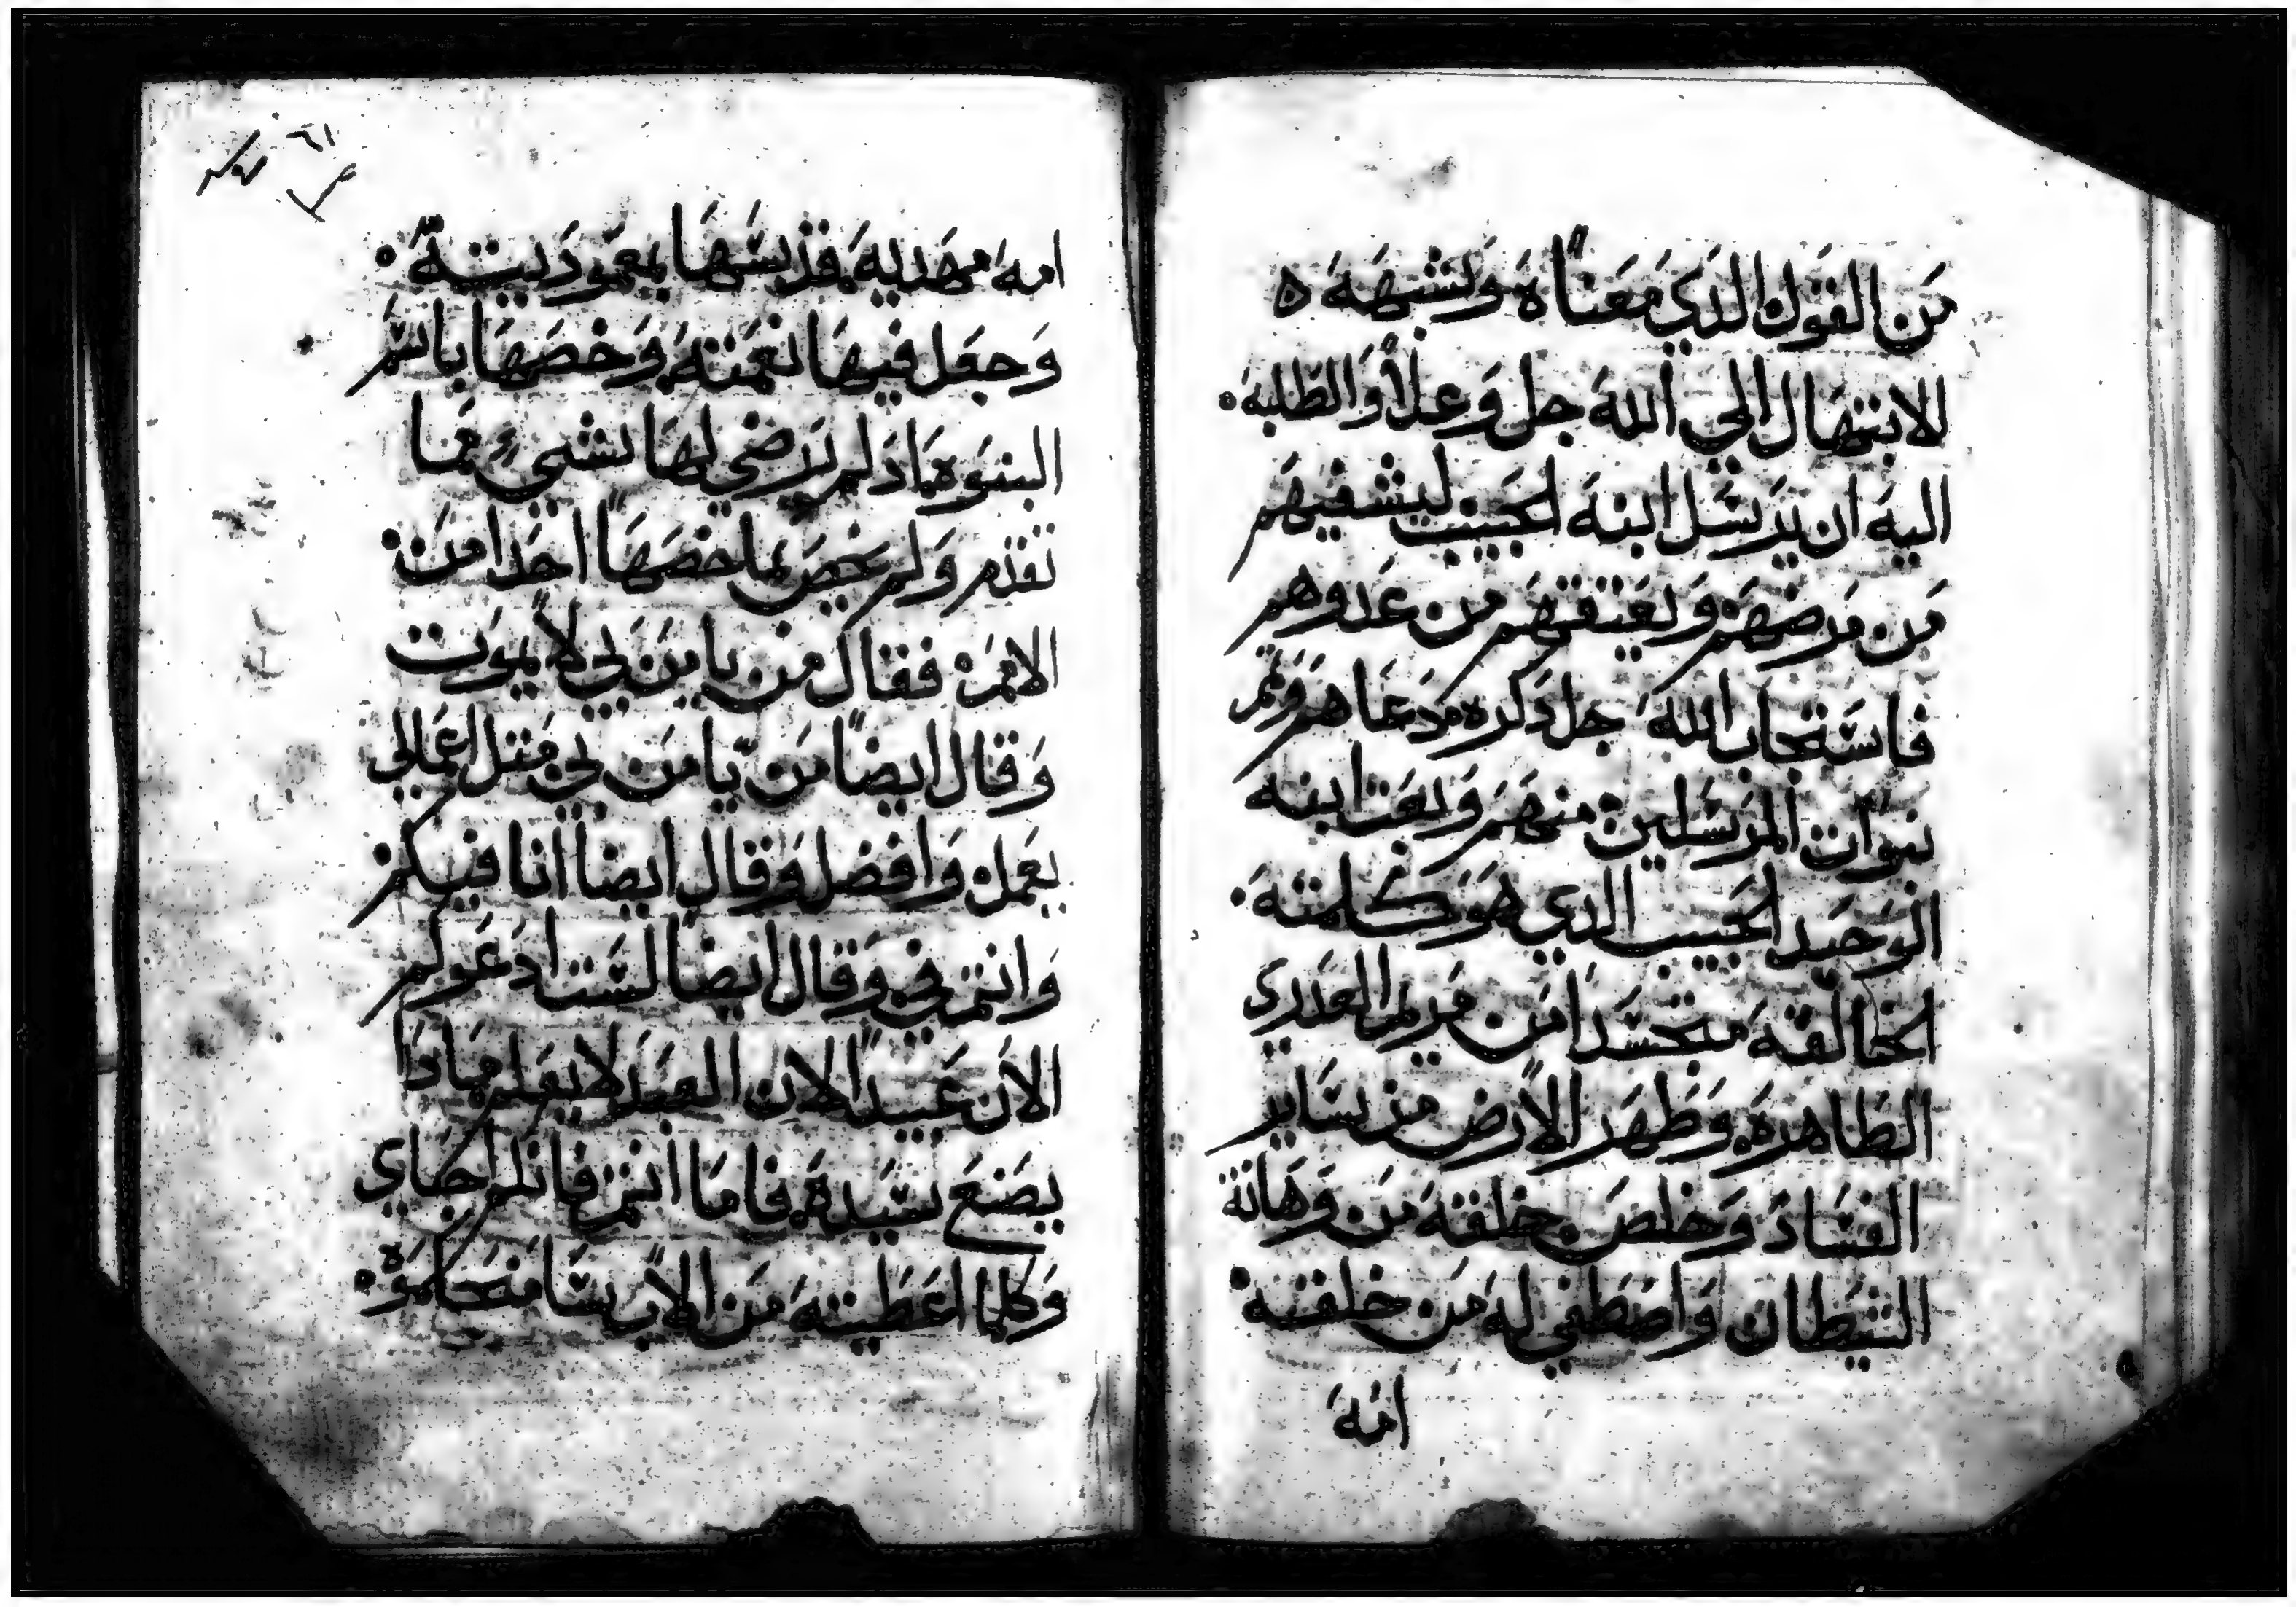 من القول الذي معناه ويشبهه
الابتهال الي الله جل وعلا والطلبه
اليه ان يرسل ابنه الحبيب ليشفيهم
من مرضهم ويعتقهم من عدوهم
فاستجاب الله جل ذكره دعاهم وتم
نبوات المرسلين منهم وبعت ابنه
الوحيد الحبيب الدي هو كلمته
الخالقة متجسدا من مريم العدري
الطاهرة وطهر الارض من ساير
الفساد وخلص خلقته من وهانة
الشيطان واصطفي له من خلقته
امة
امة مهدية قدسها بمعموديته
وجعل فيها نعمته وخصها باسم
البنوة اد لم يرضي لها بشيء مما
تقدم ولم يخص بما خصها احدا من
الامم فقال من يامن بي لا يموت
وقال ايضا من يامن بي متل اعمالي
يعمل وافضل وقال ايضا انا فيكم
وانتم في وقال ايضا لست ادعوكم
الان عبيدا لان العبد لا يعلم مادا
يصنع سيده فاما انتم فانكم احباي
وكلما اعطيته من الاب